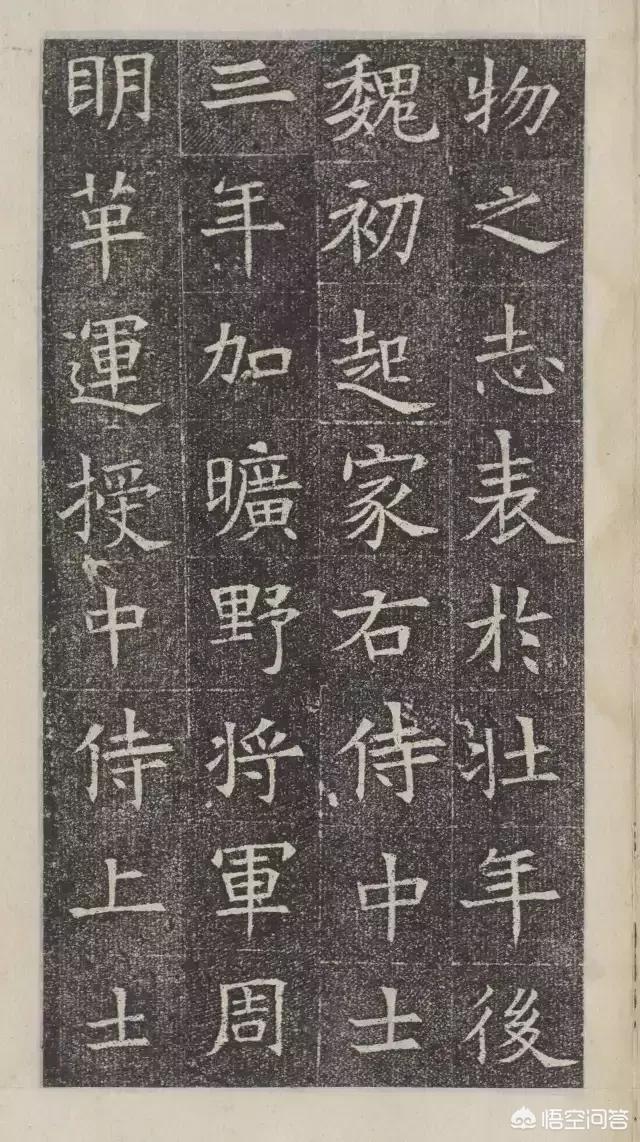 物之志表於壯年後
魏初起家右侍中士
三年加曠野将軍周
明革運授中侍上士
悟空问答